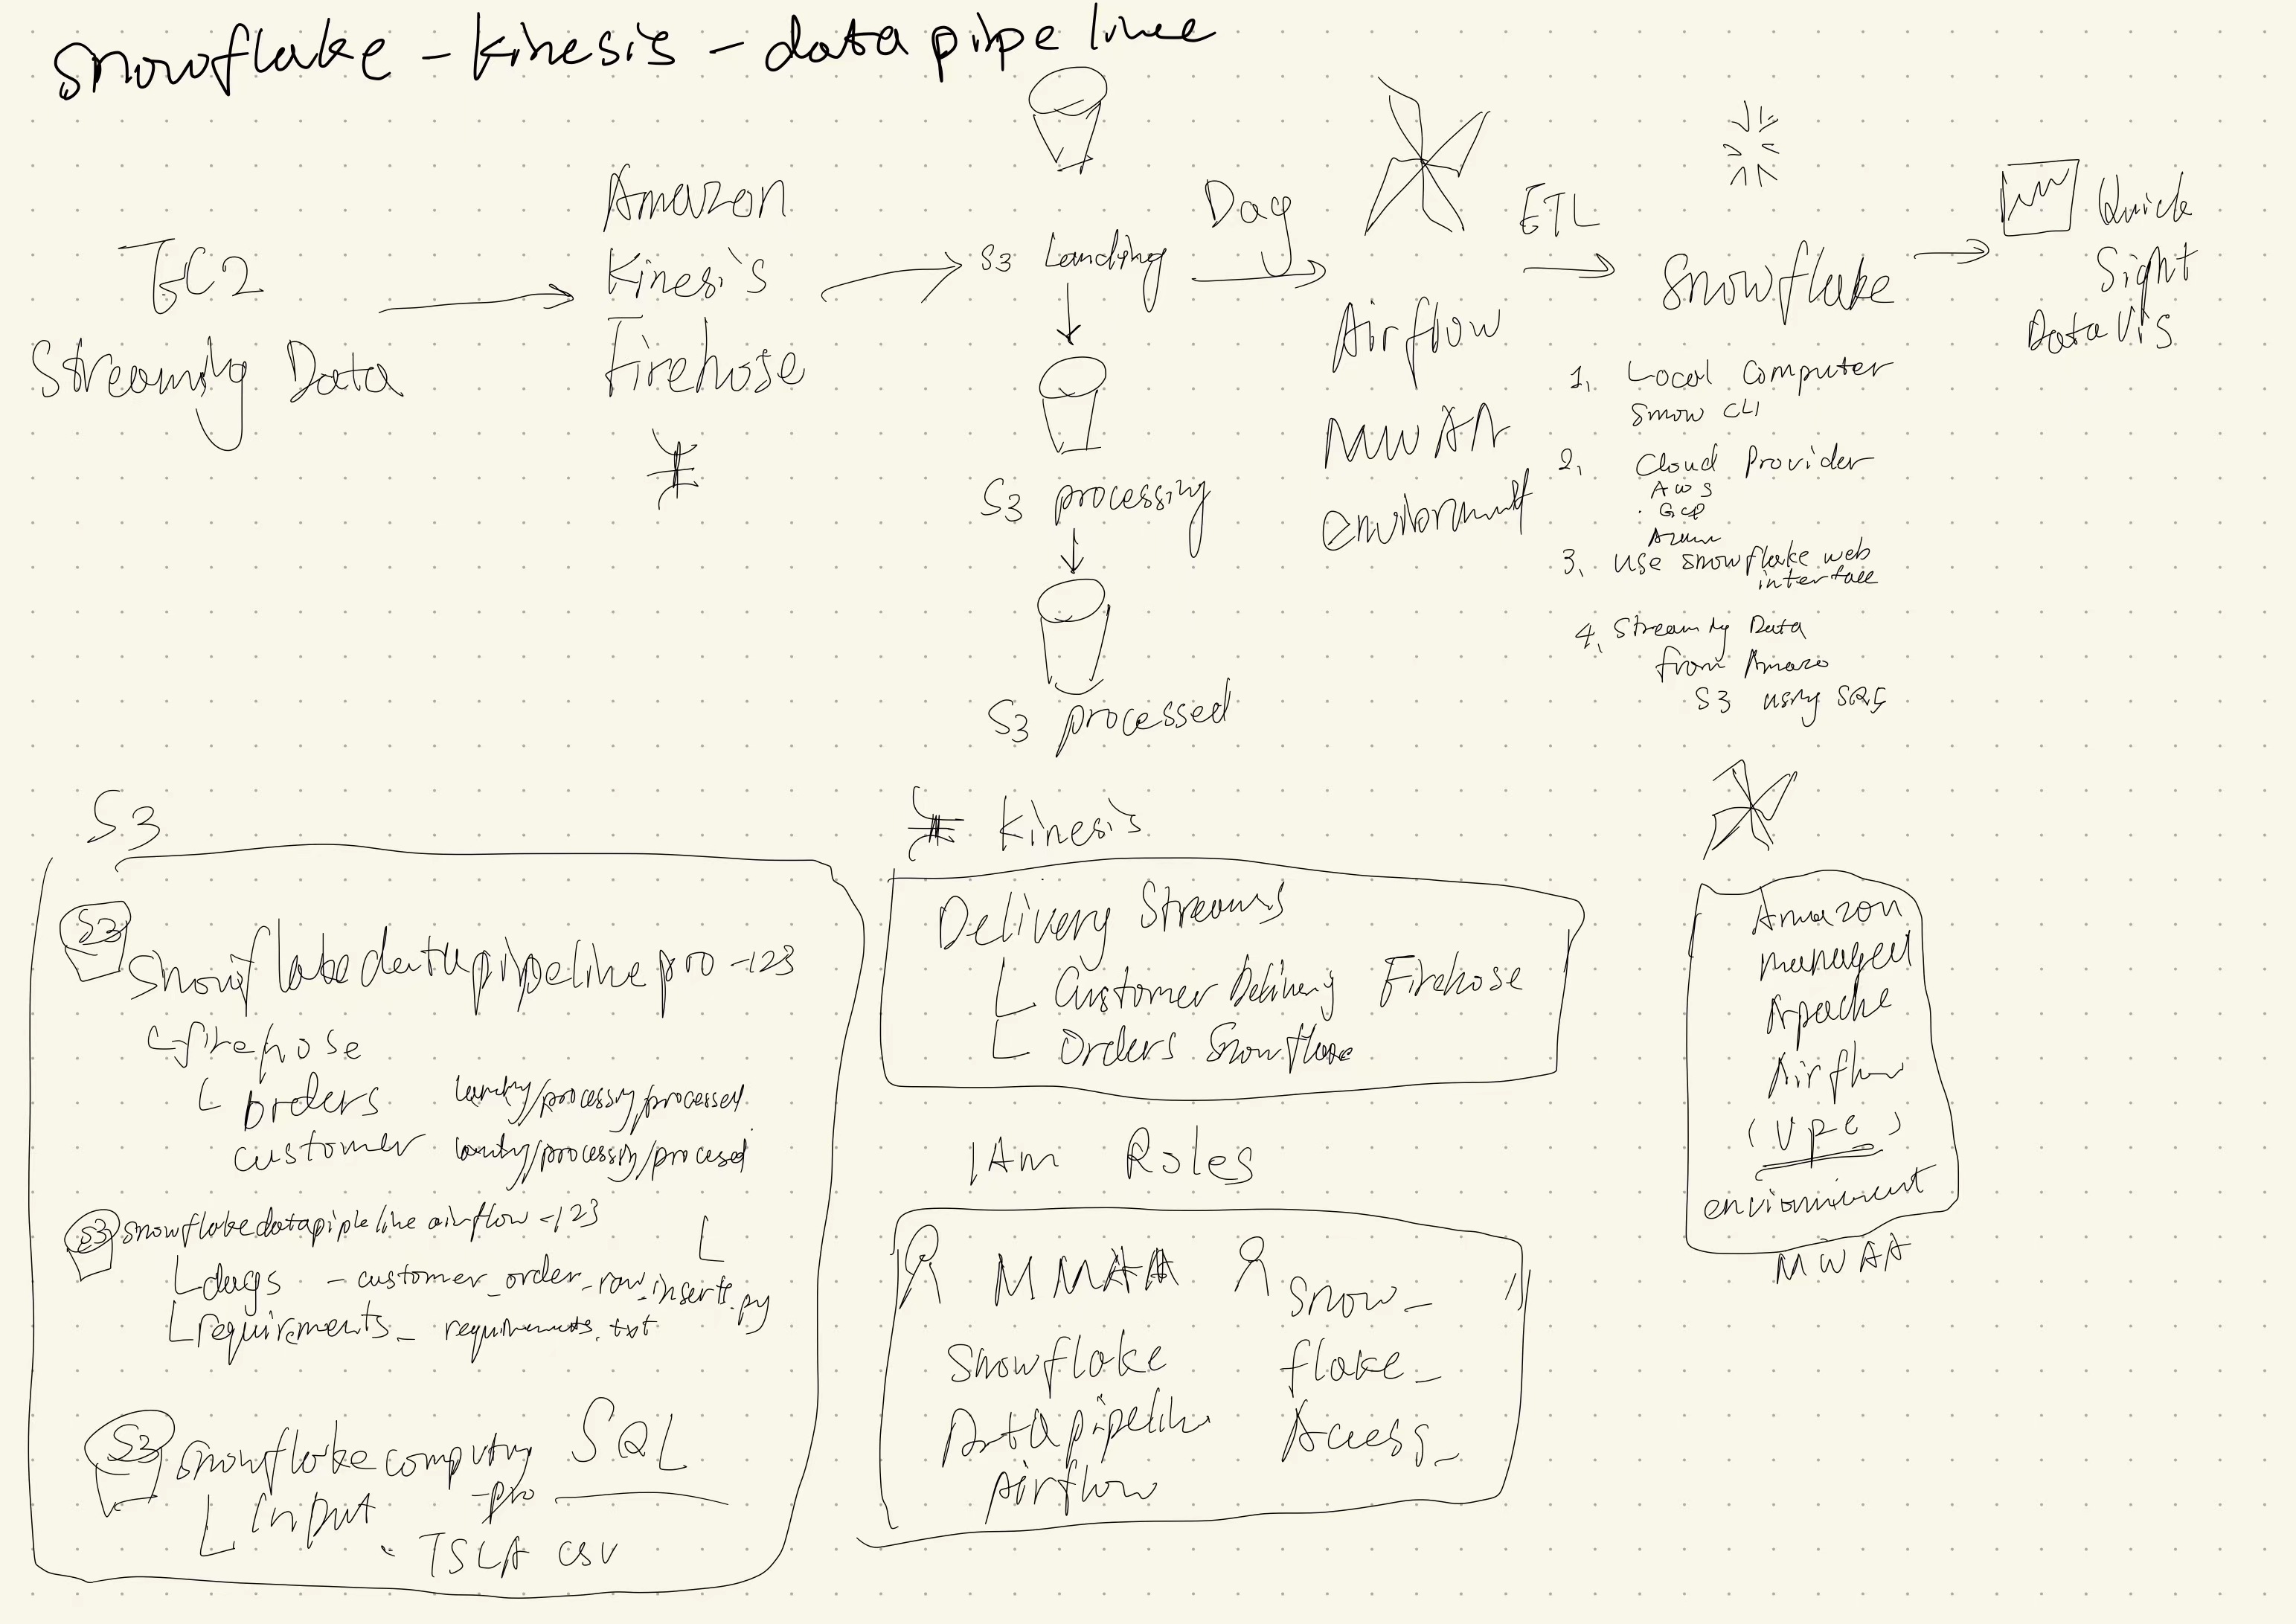 Snowflake - Kinesis - data pipeline
EC2
Streaming Data
Amazon
Kinesis
Firehose
S3 Landing
S3 processing
S3 processed
Dag
Airflow
MWAA
environment
ETL
Snowflake
1. Local Computer
Snow CLI
2. Cloud Provider
AWS
GCP
Azure
3. Use snowflake web
interface
4. Streaming Data
from Amazo
S3 using SQS
Quick
Sight
Data Vis
S3
S3
Snowflakedatapipelinepro-123
firehose
orders landing/processing/processed
customer landing/processing/processed
S3 snowflakedatapipleline airflow-123
dags - customer_order_raw_inserts.py
requirements_ requirements.txt
S3 snowflakecomputing SQL
-pro
Input
TSLA CSV
Kinesis
Delivery Streams
Customer Delivery Firehose
Orders Snowflake
IAM Roles
MMAA
Snowflake
Datapipeline
Airflow
Snow_
flake_
Access_
Amazon
managed
Apache
Airflow
(VPC)
environment
MWAA